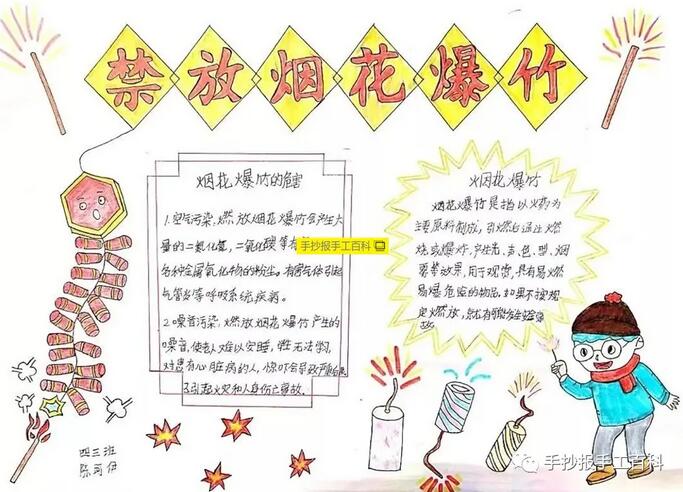 禁放烟花爆竹
烟花爆竹的危害
1.空气污染,燃放烟花爆竹会产生大
量的二氧化氮,二氧化
手抄报手工百科
各种金属氧化物的粉尘。有害气体引起
气管炎等呼吸系统疾病。
2.噪音污染,燃放烟花爆竹产生的
噪音,使老人难以安睡,学生无法学习,
对患有心脏病的人,惊吓会导致严重后果
3.引起火灾和人身伤亡事故。
烟花爆竹
烟花爆竹是指以火药为
主要原料制成,引燃后通过燃
烧或爆炸,产生光、色、型、烟
雾等效果,用于观赏,具有易燃
易爆危险的物品,如果不按规
定燃放,
四三班
手抄报手工百科